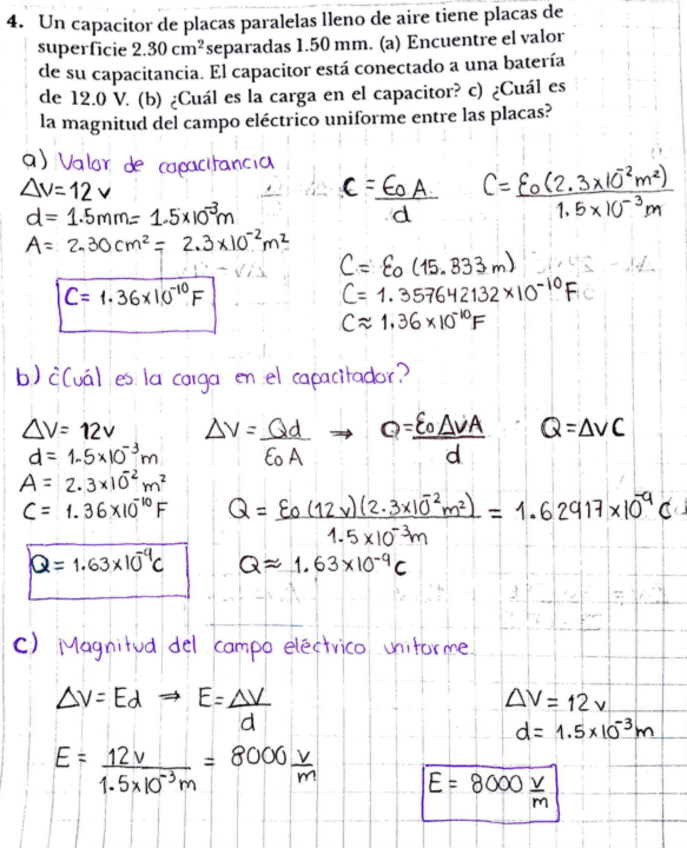 4. Un capacitor de placas paralelas lleno de aire tiene placas de
superficie 2.30 cm² separadas 1.50 mm. (a) Encuentre el valor
de su capacitancia. El capacitor está conectado a una batería
de 12.0 V. (b) ¿Cuál es la carga en el capacitor? c) ¿Cuál es
la magnitud del campo eléctrico uniforme entre las placas?
a) Valor de capacitancia
ΔV=12 v
d= 1.5mm= 1.5×10⁻³m
A= 2.30cm² = 2.3×10⁻²m²
C= 1.36×10⁻¹⁰F
C = ε₀ A / d
C= ε₀(2.3×10⁻²m²) / 1.5×10⁻³m
C= ε₀ (15.333 m)
C= 1.357642132×10⁻¹⁰F
C≈ 1.36×10⁻¹⁰F
b) ¿Cuál es la carga en el capacitador?
ΔV= 12v
d= 1.5×10⁻³m
A= 2.3×10⁻²m²
C= 1.36×10⁻¹⁰F
Q= 1.63×10⁻⁹c
ΔV = Qd / ε₀ A → Q= ε₀ΔVA / d Q=ΔVC
Q = ε₀(12v)(2.3×10⁻²m²) / 1.5×10⁻³m = 1.62917×10⁻⁹c
Q≈ 1.63×10⁻⁹c
c) Magnitud del campo eléctrico uniforme
ΔV=Ed ⇒ E=ΔV / d
E = 12v / 1.5×10⁻³m = 8000 v/m
ΔV= 12v
d= 1.5×10⁻³m
E= 8000 v/m